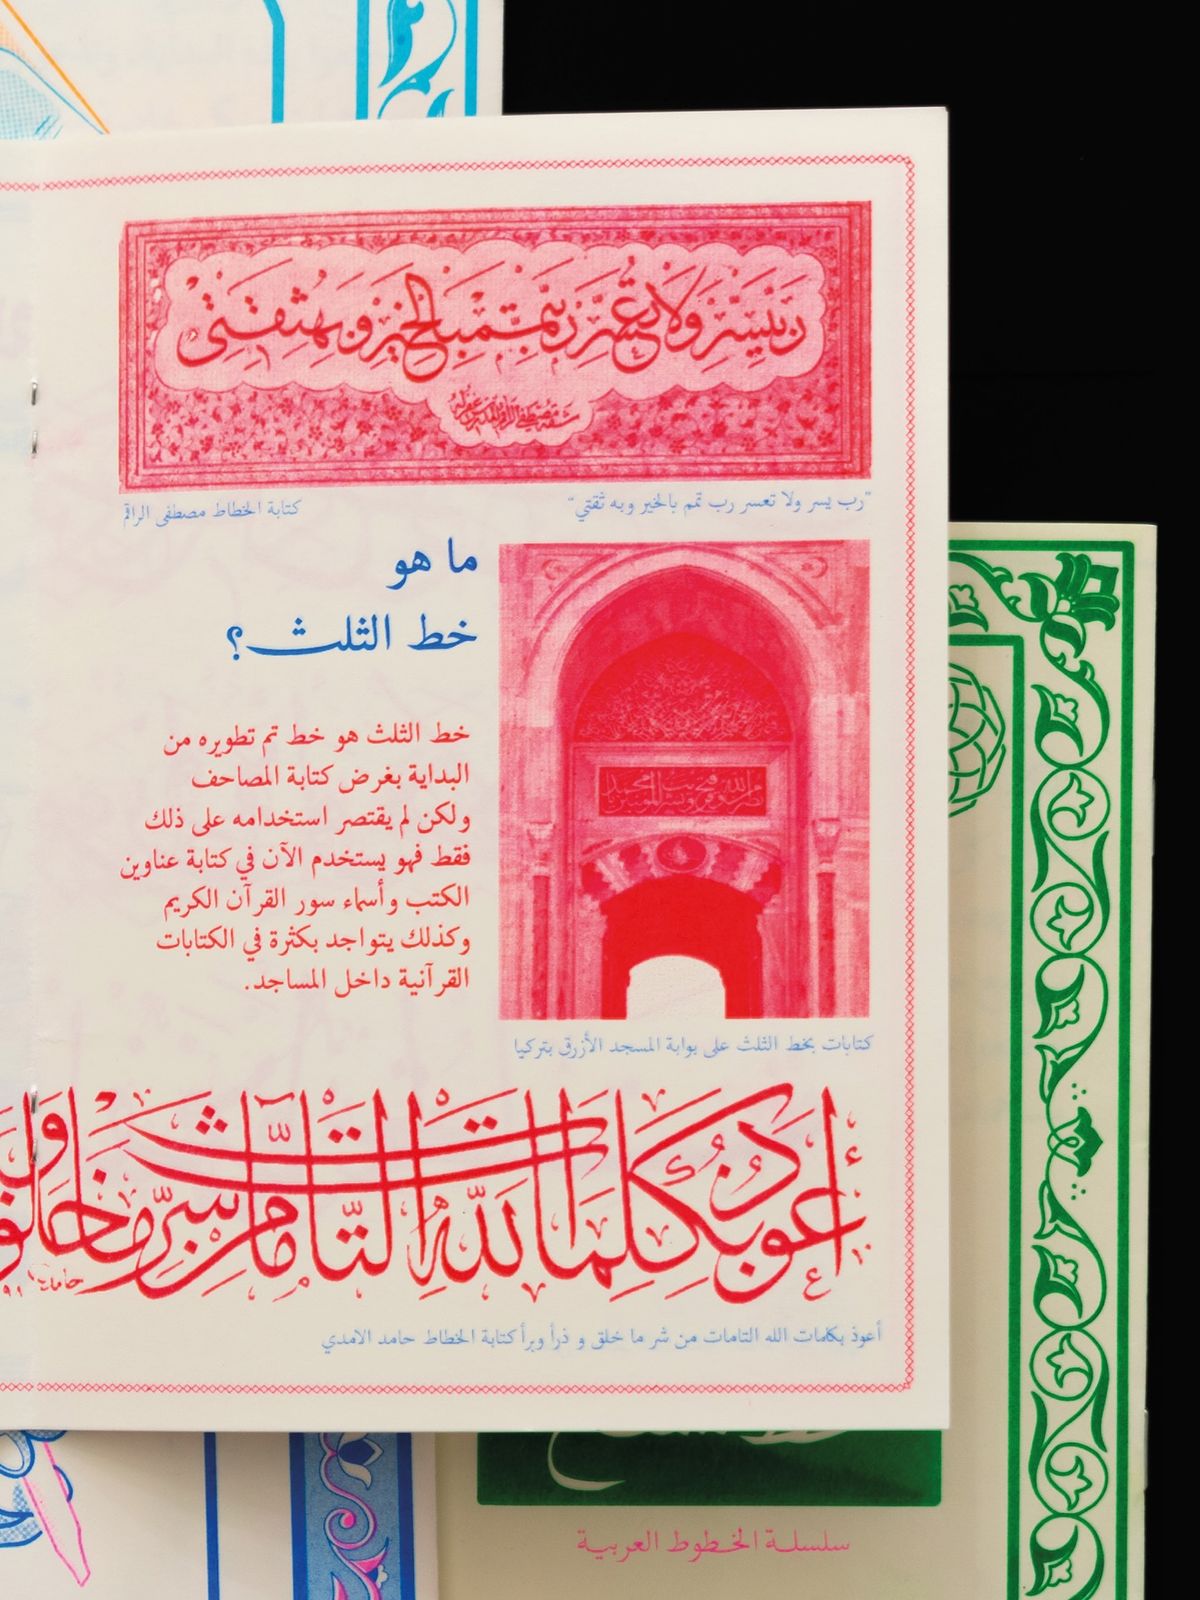 رب يسر ولا تعسر رب تمم بالخير وبه ثقتي
"رب يسر ولا تعسر رب تمم بالخير وبه ثقتي"
كتابة الخطاط مصطفى الراقم
ما هو
خط الثلث؟
خط الثلث هو خط تم تطويره من
البداية بغرض كتابة المصاحف
ولكن لم يقتصر استخدامه على ذلك
فقط فهو يستخدم الآن في كتابة عناوين
الكتب وأسماء سور القرآن الكريم
وكذلك يتواجد بكثرة في الكتابات
القرآنية داخل المساجد.
كتابات بخط الثلث على بوابة المسجد الأزرق بتركيا
أعوذ بكلمات الله التامات من شر ما خلق
حامد
أعوذ بكلمات الله التامات من شر ما خلق و ذرأ وبرأ كتابة الخطاط حامد الامدي
سلسلة الخطوط العربية